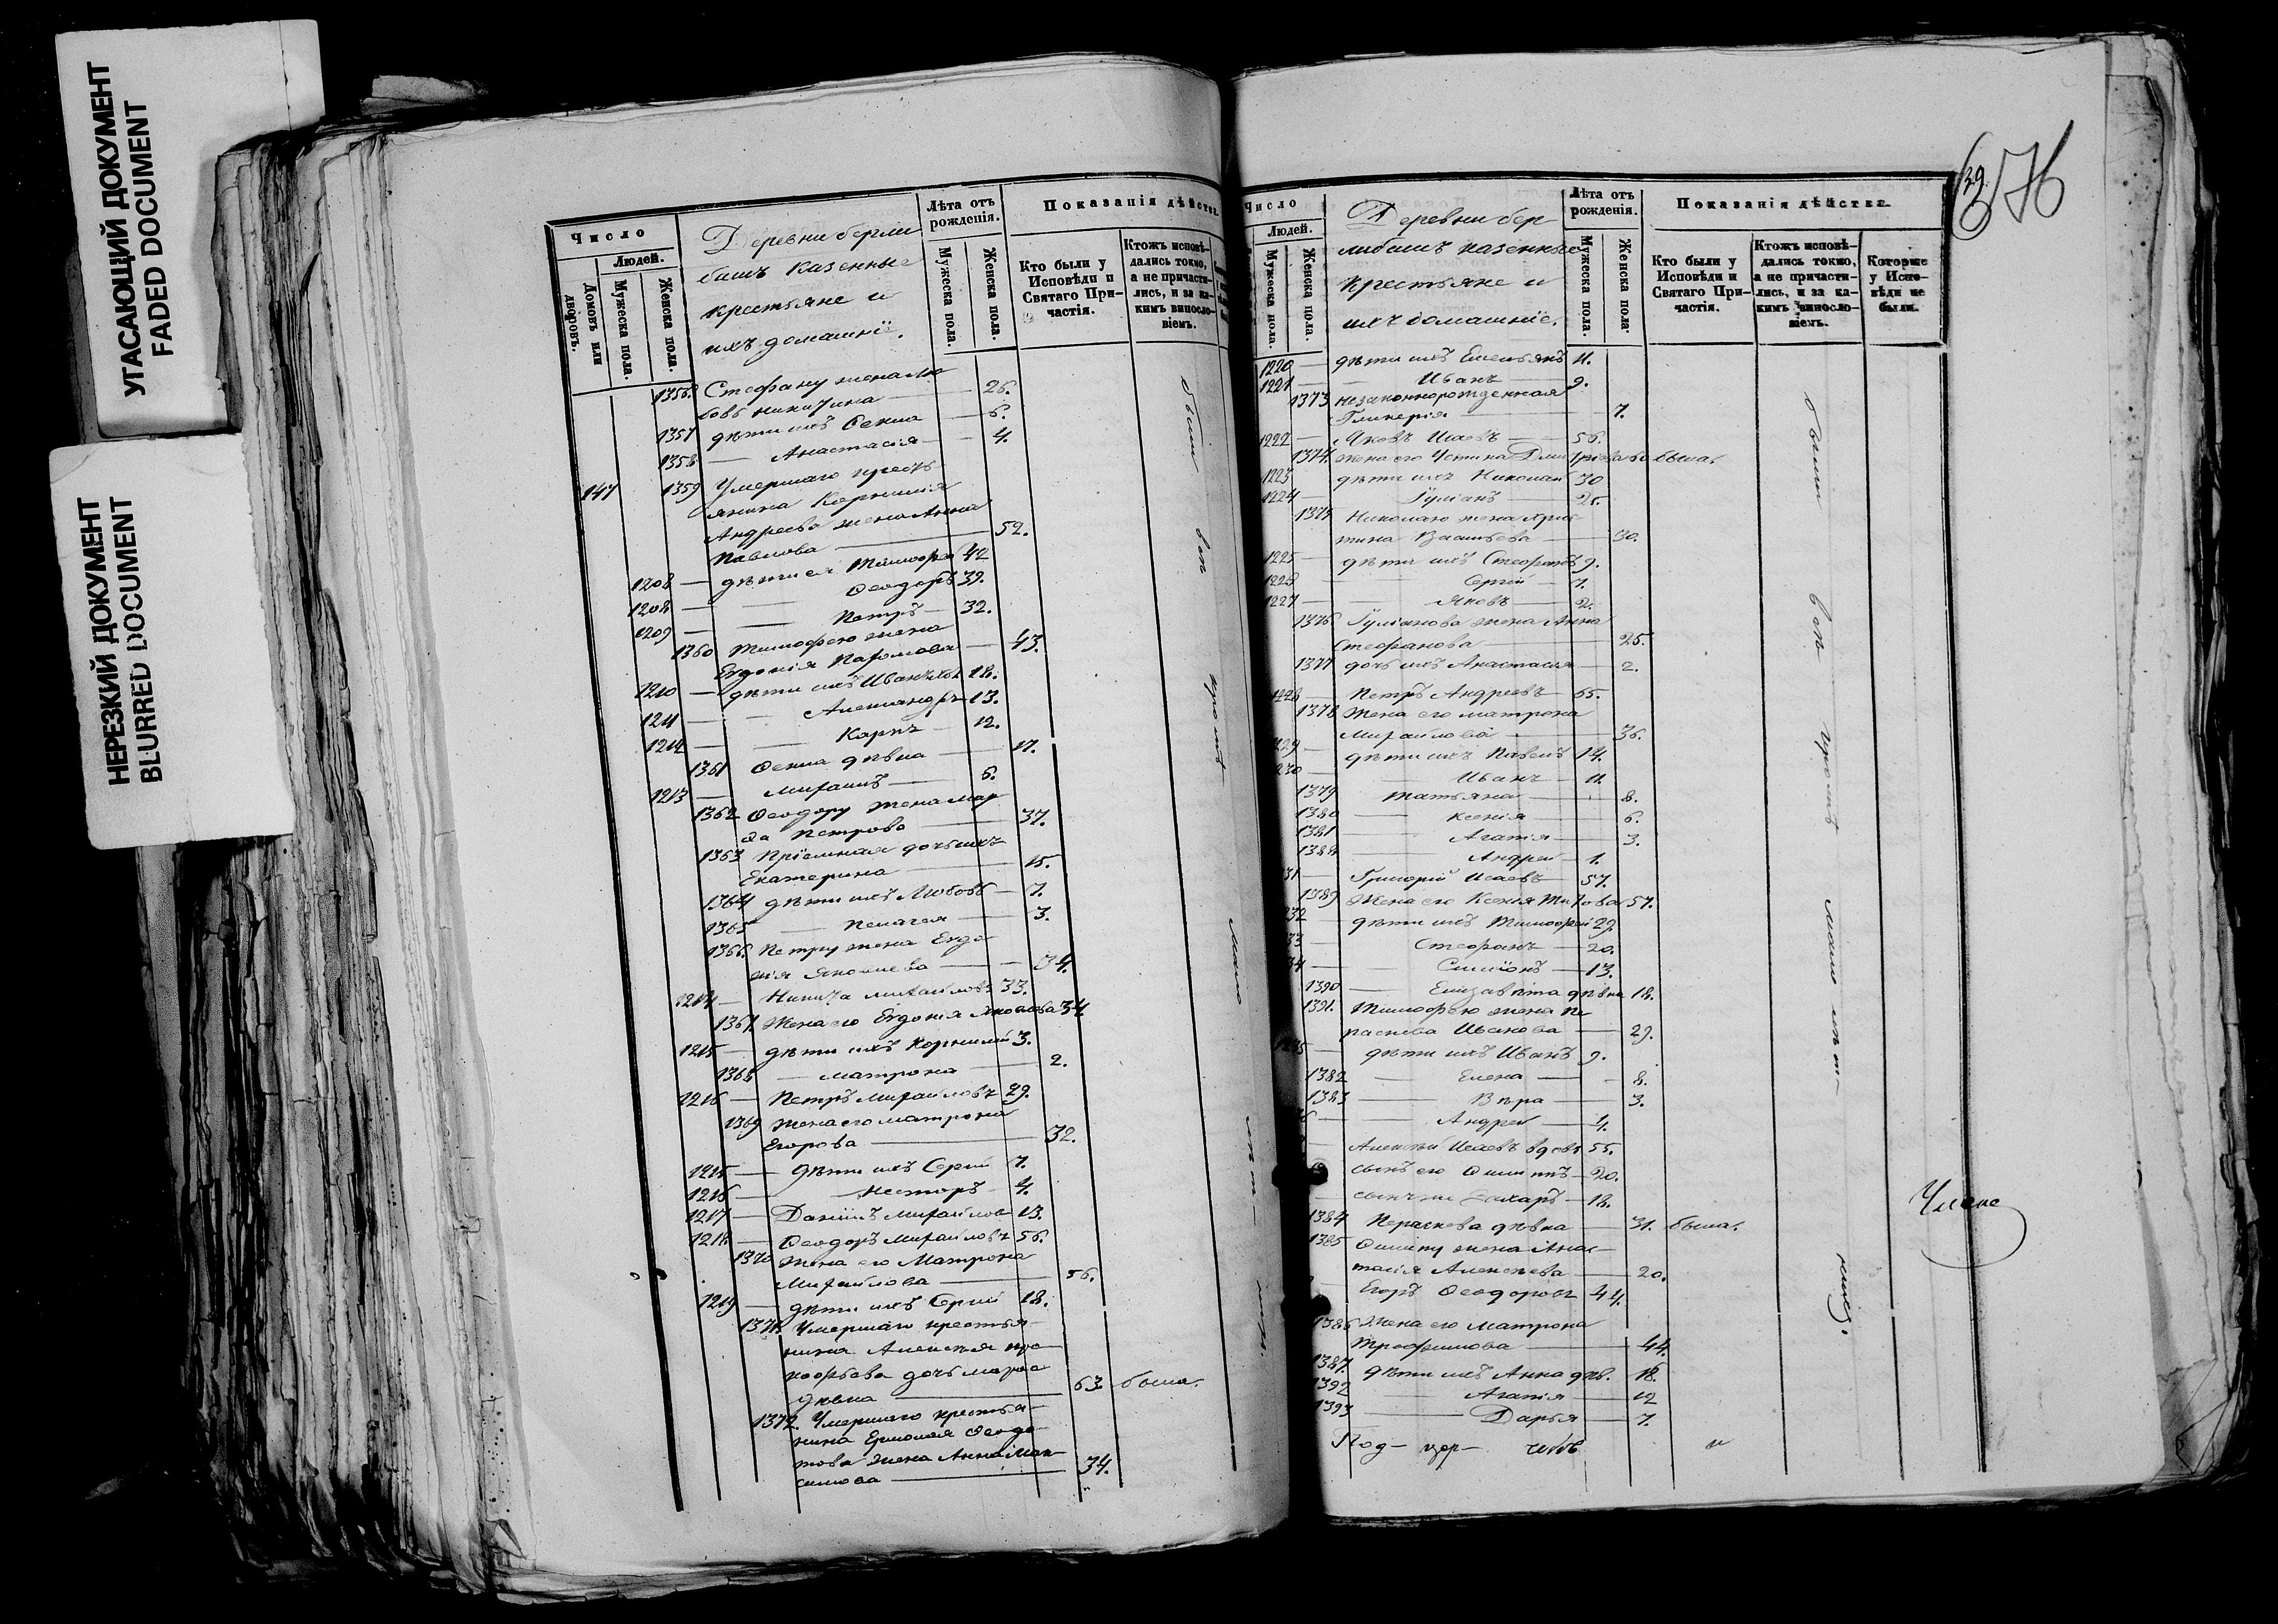 УГАСАЮЩИЙ ДОКУМЕНТ
FADED DOCUMENT
НЕРЕЗКИЙ ДОКУМЕНТ
BLURRED DOCUMENT
Число
Людей.
Домовъ или дворовъ.
Мужеска пола.
Женска пола.
Деревни берли
башъ казенные
крестьяне и
ихъ домашніе.
Лѣта отъ рожденія.
Мужеска пола.
Женска пола.
Показанія дѣйства
Кто были у Исповѣди и Святаго Причастія.
Ктожъ исповѣдались токмо, а не причастились, и за какимъ винословіемъ.
1356 Стефану жена Лю
бовь Никитина — 26.
1357 дѣти ихъ Ѳекла — 6.
1358 — Анастасія — 4.
147 1359 Умершаго кресть
янина Корнилія
Андреева жена Анна
Павлова — 52.
1208 — дѣти ея Тимофей 42
1208 — Ѳеодоръ 39.
1209 — Петръ — 32.
1360 Тимофею жена
Евдокія — 43.
1210 — дѣти ихъ Иванъ 18.
1211 — Александръ 13.
1212 — Карпъ — 12.
1361 Ѳекла дѣвка — 17.
1213 — Михаилъ — 6.
1362 Ѳеодору жена Мар
ѳа Петрова — 37.
1363 Пріемная дочь ихъ
Екатерина — 15.
1364 дѣти ихъ Любовь — 7.
1365 — Пелагея — 3.
1366. Петру жена Евдо
кія Яковлева — 34.
1214 — Никита Михайловъ 33.
1367. Жена его Евдокія Яковлева 34
1215 — дѣти ихъ Корнилій 3.
1368 — Матрона — 2.
1216 — Петръ Михайловъ 29.
1369 Жена его Матрона
Егорова — 32.
1215 — дѣти ихъ Сергій 7.
1216 — Несторъ 4.
1217 — Даніилъ Михайлов 13.
1218. — Ѳеодоръ Михайловъ 56.
1370 Жена его Матрона
Михайлова — 56.
1219 — дѣти ихъ Сергій 18.
1371. Умершаго крестья-
нина Алексѣя про-
кофьева дочь Марѳа
дѣвка — 63. была.
1372. Умершаго крестья-
нина Ермолая Ѳеодо-
това жена Анна Мак-
симова — 34.
Число
Людей.
Мужеска пола.
Женска пола.
Деревни бер
либашъ казенные
крестьяне и
ихъ домашніе.
Лѣта отъ рожденія.
Мужеска пола.
Женска пола.
Показанія дѣйства
Кто были у Исповѣди и Святаго Причастія.
Ктожъ исповѣдались токмо, а не причастились, и за какимъ винословіемъ.
Которые у Исповѣди не были.
39.
1220 — дѣти ихъ Емельянъ 11.
1221 — Иванъ — 9.
1373 незаконнорожденная
Гликерія — 7.
1222 — Яковъ Исаевъ — 56.
1374. Жена его Устина была.
1223 дѣти ихъ Николай 30
1224 — Гуліанъ — 25.
1375 Николаю жена Хрис
тина — 30.
1225 — дѣти ихъ Стефанъ 9.
1226 — Сергій — 7.
1227 — Яковъ — 2.
1376 Гуліанова жена Анна
Стефанова — 25.
1377 дочь ихъ Анастасія — 2.
1228 — Петръ Андреевъ — 55.
1378 Жена его Матрона
Михайлова — 36.
229 — дѣти ихъ Павелъ 14.
230 — Иванъ — 11.
1379 Татьяна — 8.
1380 — Ксенія — 6.
1381 — Агапія — 3.
1388 — Андрей — 1.
31 — Григорій Исаевъ — 57.
1389 Жена его Ксенія Титова 57.
32 дѣти ихъ Тимофей 29.
33 — Стефанъ — 20.
34 — Симіонъ — 13.
1390 — Елизавѣта дѣвка 18.
1391. Тимофею жена Пе
раскева Иванова — 29.
1235 — дѣти ихъ Иванъ 9.
1382 — Елена — 8.
1383 — Вѣра — 3.
36 — Андрей — 4.
Алексѣй Исаевъ вдовъ 55.
сынъ его Филиппъ — 20.
Захаръ — 18.
1384 Пераскева дѣвка — 31. была.
1385 Филипу жена Анас-
тасія Алексѣева — 20.
Егоръ Ѳеодоровъ 44.
1386 Жена его Матрона
Трофимова — 44.
1387. дѣти ихъ Анна дѣв. — 18.
1392 — Агапія — 12
1393 — Дарья — 7.